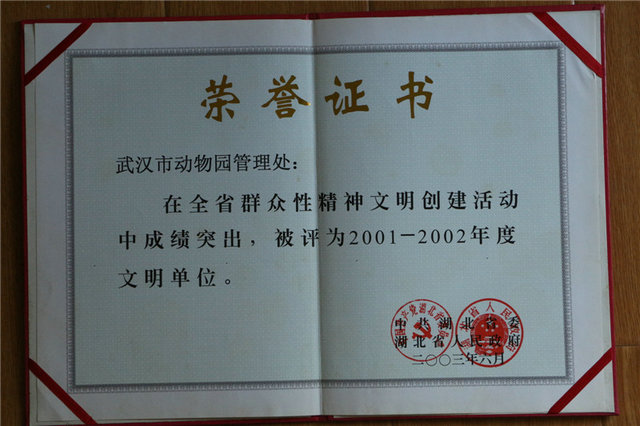 荣誉证书
武汉市动物园管理处：
在全省群众性精神文明创建活动
中成绩突出，被评为2001—2002年度
文明单位。
中共湖北省委
湖北省人民政府
二〇〇三年六月